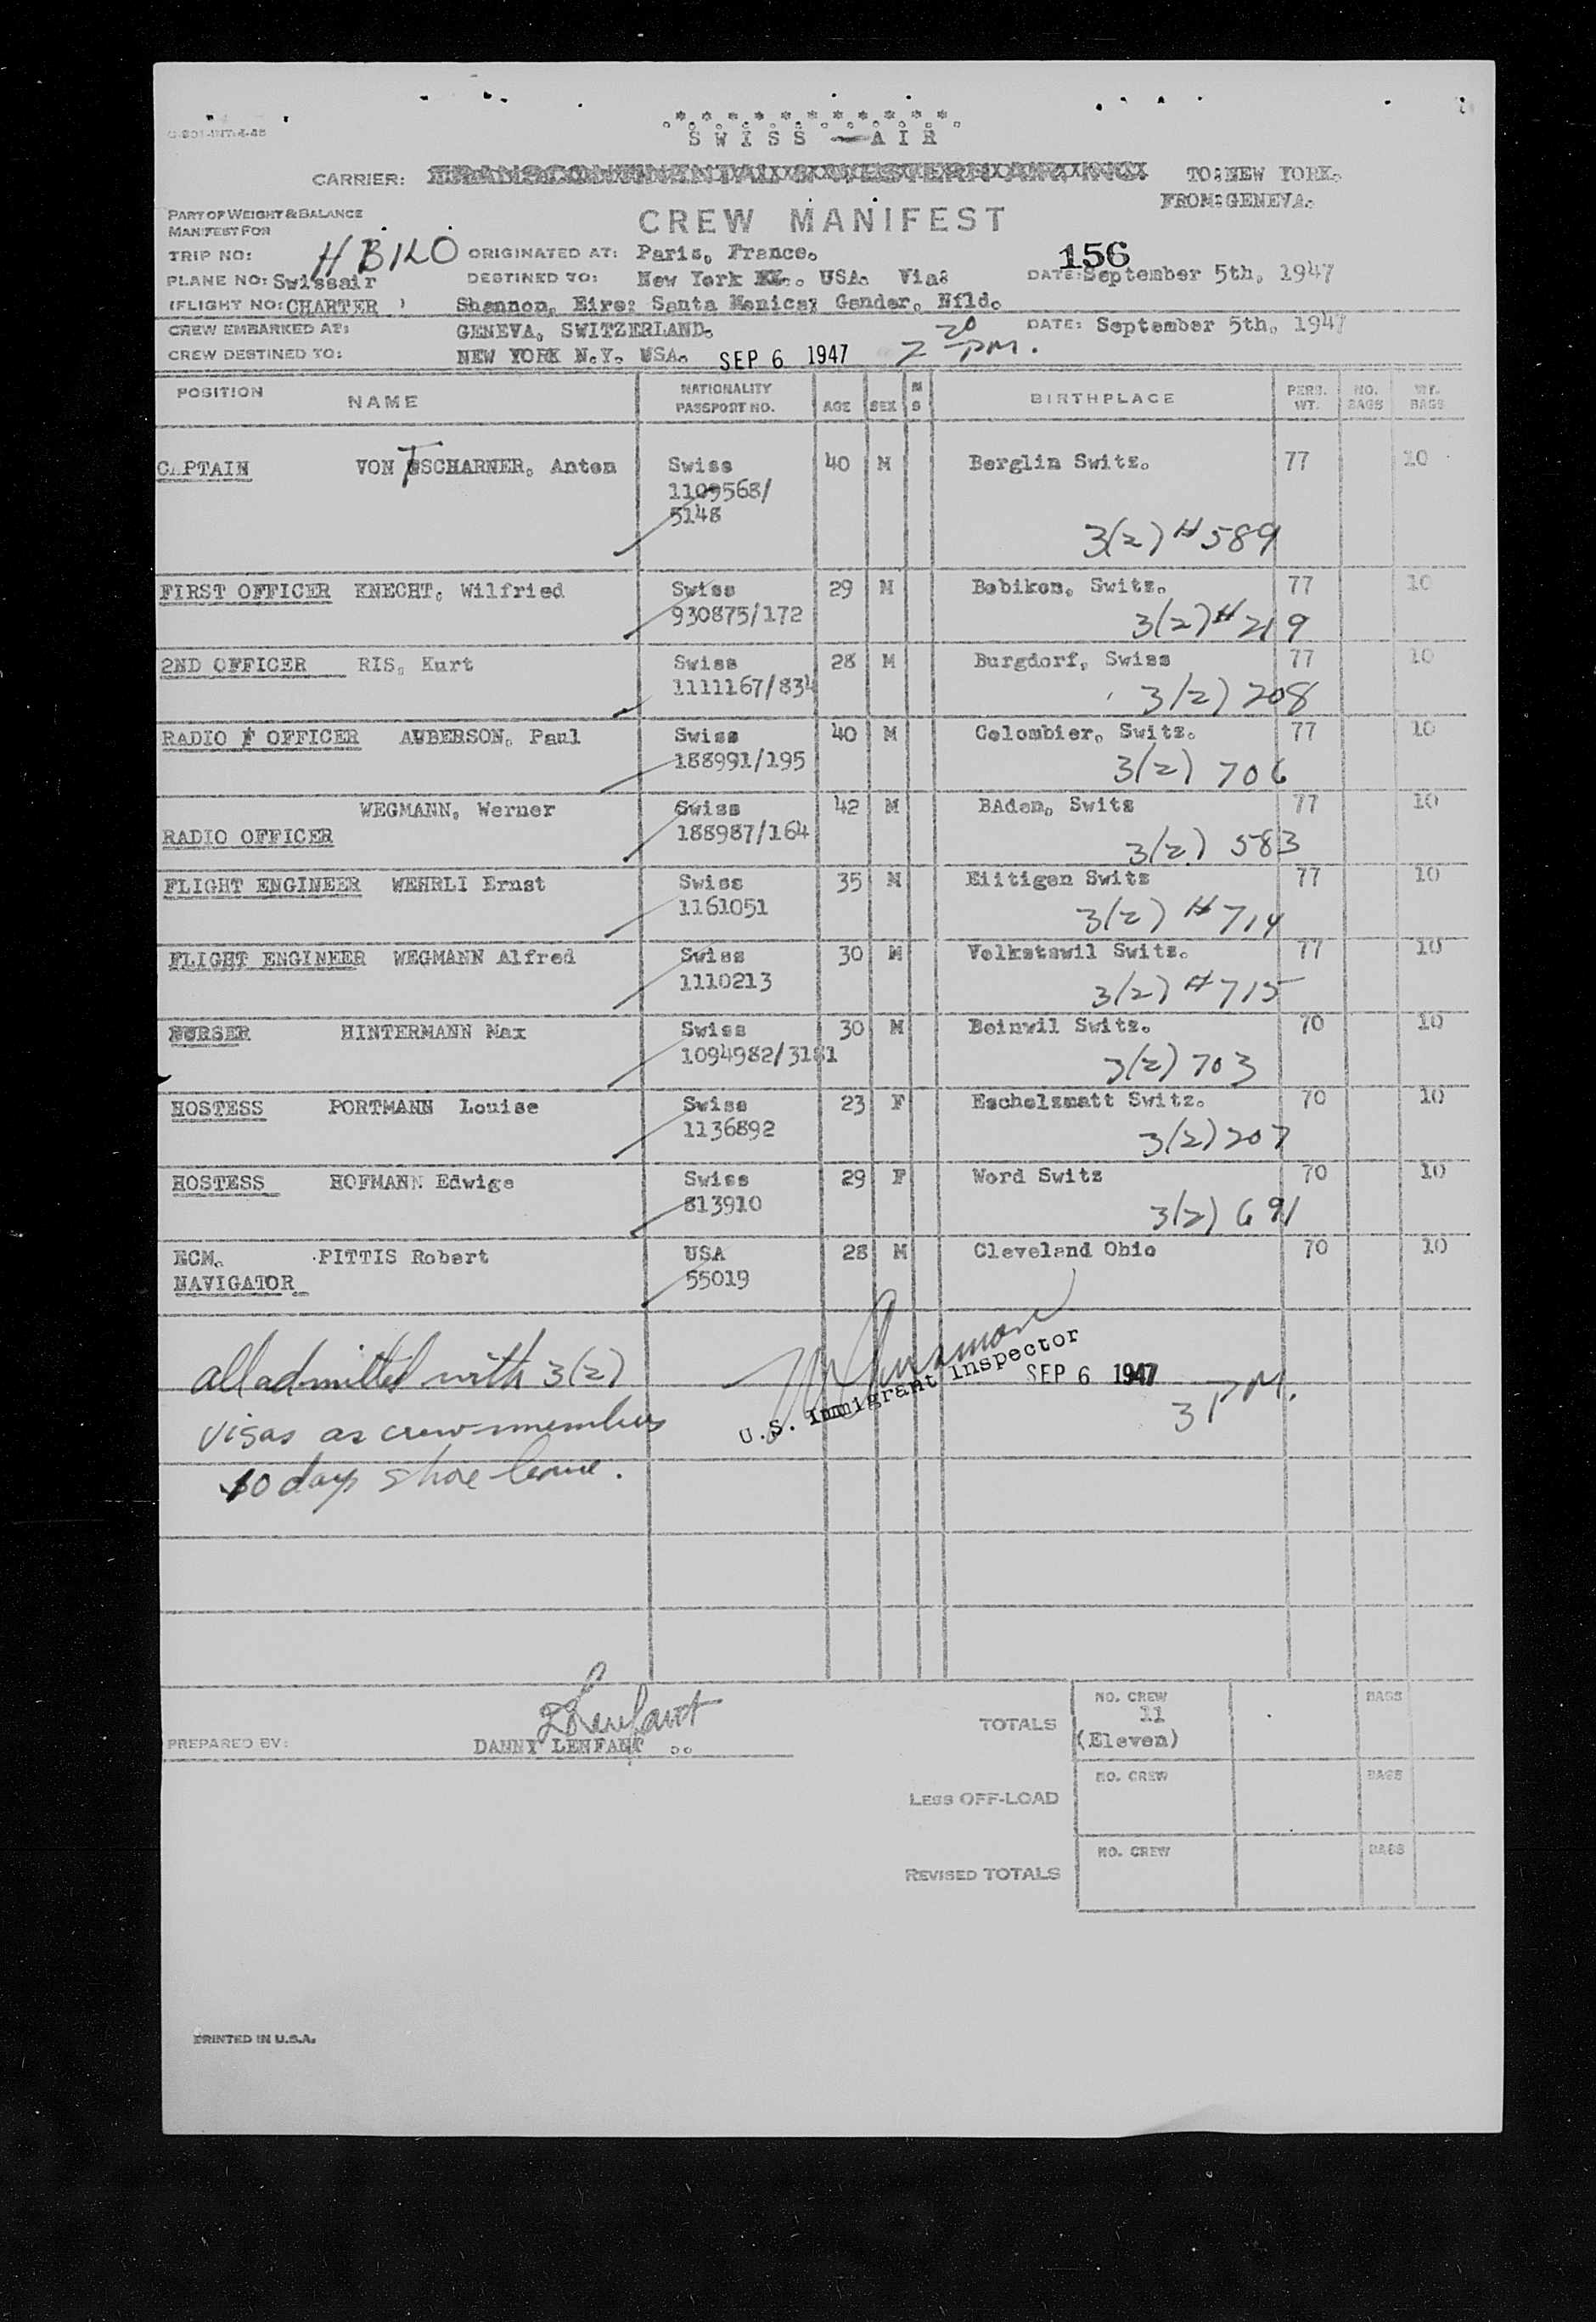 U-801-INT-4-45
************
SWISS — AIR
CARRIER: TRANSCONTINENTAL & WESTERN AIR, INC. TO: NEW YORK.
FROM: GENEVA.
PART OF WEIGHT & BALANCE
MANIFEST FOR
CREW MANIFEST
TRIP NO: HBILO ORIGINATED AT: Paris, France. 156
PLANE NO: Swissair DESTINED TO: New York USA. Via: DATE: September 5th, 1947
(FLIGHT NO: CHARTER ) Shannon, Eire: Santa Monica; Gander, Nfld.
CREW EMBARKED AT: GENEVA, SWITZERLAND. DATE: September 5th, 1947
CREW DESTINED TO: NEW YORK N.Y. USA. SEP 6 1947 2 20 PM.
POSITION NAME NATIONALITY PASSPORT NO. AGE SEX M S BIRTHPLACE PERS. WT. NO. BAGS WT. BAGS
CAPTAIN VON TSCHARNER, Anton Swiss 40 M Berglin Switz. 77 10
1109568/
5148
3(2) # 589
FIRST OFFICER KNECHT, Wilfried Swiss 29 M Bobikon, Switz. 77 10
930875/172 3(2) # 219
2ND OFFICER RIS, Kurt Swiss 28 M Burgdorf, Swiss 77 10
1111167/834 3(2) 208
RADIO OFFICER AUBERSON, Paul Swiss 40 M Colombier, Switz. 77 10
188991/195 3(2) 706
WEGMANN, Werner Swiss 42 M BAden, Switz 77 10
RADIO OFFICER 188987/164 3(2) 583
FLIGHT ENGINEER WEHRLI Ernst Swiss 35 M Eiitigen Switz 77 10
1161051 3(2) # 714
FLIGHT ENGINEER WEGMANN Alfred Swiss 30 M Volketswil Switz. 77 10
1110213 3(2) # 715
PURSER HINTERMANN Max Swiss 30 M Beinwil Switz. 70 10
1094982/3181 3(2) 703
HOSTESS PORTMANN Louise Swiss 23 F Escholzmatt Switz. 70 10
1136892 3(2) 207
HOSTESS HOFMANN Edwige Swiss 29 F Word Switz 70 10
813910 3(2) 691
ECM. PITTIS Robert USA 28 M Cleveland Ohio 70 10
NAVIGATOR 55019
all admitted with 3(2)
visas as crew members
10 days shore leave.
U.S. Immigrant Inspector
SEP 6 1947
3 PM.
NO. CREW BAGS
TOTALS 11
(Eleven)
PREPARED BY: DANNY LENFANT
NO. CREW BAGS
LESS OFF-LOAD
NO. CREW BAGS
REVISED TOTALS
PRINTED IN U.S.A.